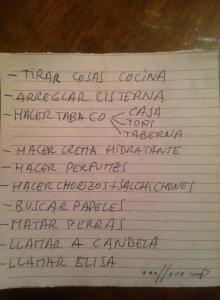 - TIRAR COSAS COCINA
- ARREGLAR CISTERNA
- HACER TABACO CASA
TONI
TABERNA
- HACER CREMA HIDRATANTE
- HACER PERFUMES
- HACER CHORIZOS + SALCHICHONES
- BUSCAR PAPELES
- MATAR PERRAS
- LLAMAR A CANDELA
- LLAMAR ELISA
...//...